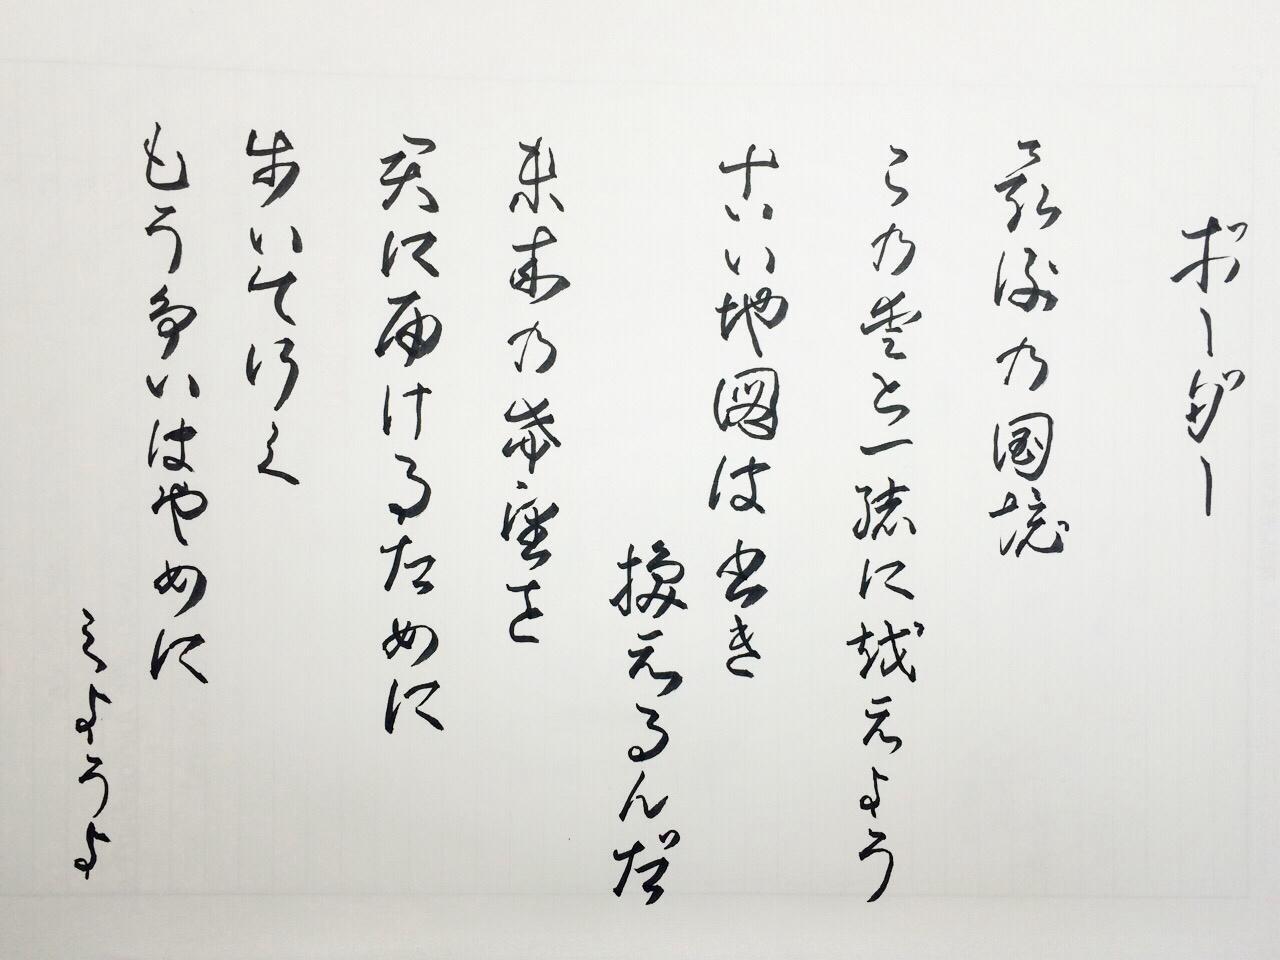 ボーダー
最後の国境
この愛と一緒に越えよう
古い地図は書き
換えるんだ
未来の希望を
君に届けるために
歩いて行く
もう争いはやめに
しようよ